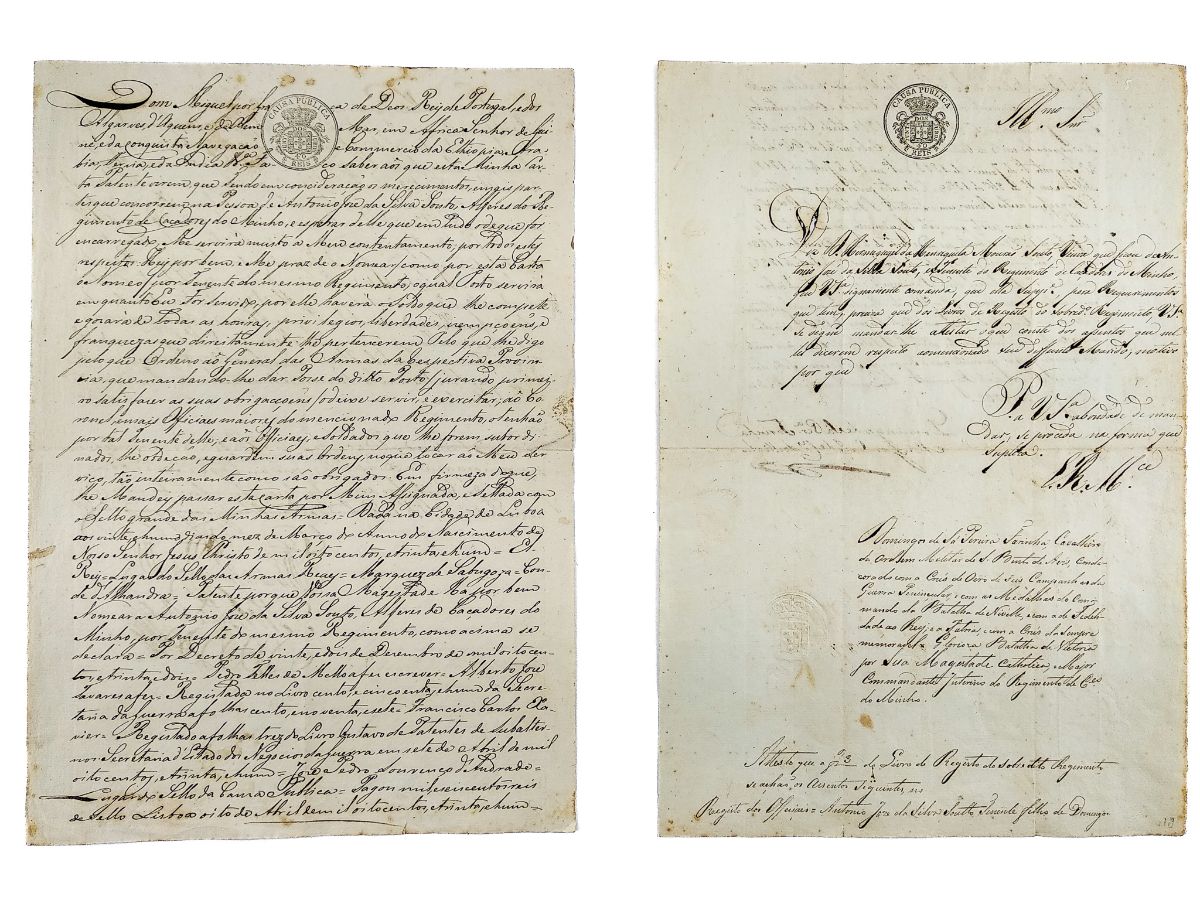 Dom Miguel por Graça de Deos Rey de Portugal, e dos
Algarves, d'Aquem, e d'Alem Mar, em Africa Senhor de Gui-
né, e da Conquista Navegação e Commercio da Ethiopia, Ara-
bia, Persia, e da India &ª Faço saber aos que esta Minha Car-
ta Patente virem, que tendo em consideração os merecimentos, e mais par-
tes que concorrem na Pessoa de Antonio Joze da Silva Souto, Alferes do Re-
gimento de Caçadores do Minho, e esperar delle que em tudo o de que for
encarregado, Me servirá muito a Meu contentamento, por todos estes
respeitos: Hey por bem, e Me praz de o Nomear, como por esta Carta
o Nomeo, por Tenente do mesmo Regimento, o qual Posto servirá
em quanto Eu For Servido, por elle haverá o Soldo que lhe competir
e gozará de todas as honras, privilegios, liberdades, izempçoens, e
franquezas que direitamente lhe pertencerem. Pelo que lhe digo
pelo que Ordeno ao General das Armas da respectiva Provin-
cia, que mandando-lhe dar Posse do ditto Posto, jurando primei-
ro satisfazer as suas obrigaçoens, o deixe servir, e exercitar; ao Co-
ronel, e mais Officiaes maiores do mencionado Regimento, o tenhão
por tal Tenente delle; e aos Officiaes, e Soldados que lhe forem subordi-
nados, lhe obedeção, e guardem suas ordens, no que tocar ao Meu Ser-
viço, tão inteiramente como são obrigados. Em firmeza do que,
lhe Mandey passar esta Carta por Mim Assignada, e Sellada com
o Sello grande das Minhas Armas = Dada na Cidade de Lisboa
aos vinte, e hum dias do mez de Março do Anno do Nascimento de
Nosso Senhor Jesus Christo de mil oito centos, e trinta, e hum = El
Rey = Lugar do Sello das Armas Reaes = Marquez de Sabugoza = Con-
de d'Alhandra = Patente porque Vossa Magestade Ha por bem
Nomear a Antonio Joze da Silva Souto, Alferes de Caçadores do
Minho, por Tenente do mesmo Regimento, como acima se
declara = Por Decreto de vinte, e dois de Dezembro de mil oito cen-
tos, e trinta, = Pedro Telles de Mello a fez escrever = Alberto Joze
Tavares a fez = Registada no Livro cento, e cincoenta, e hum da Secre-
taria da Guerra a folhas cento, e noventa, e sete = Francisco Carlos Xa-
vier = Registado a folhas trez do Livro Oustavo de Patentes de Subalter-
nos Secretaria d'Estado dos Negocios da Guerra em sete de Abril de mil
oito centos, e trinta, e hum = Joze Pedro Lourenço d'Andrade =
Lugar do Sello da Causa Publica = Pagou mil, e seiscentos reis
de Sello Lisboa oito de Abril de mil oitocentos, e trinta, e hum =
CAUSA PUBLICA
REIS
CAUSA PUBLICA
40
REIS
Illmo. Snr.
Diz D. da Moraes Souto, Viuva que ficou d'Anto-
nio Joze da Silva Souto, Tenente do Regimento de Caçadores do Minho,
que V. Sª. dignamente comanda, que ella Suppe. para Requerimentos
que tem, preciza que dos Livros de Registo do Sobredo. Regimento V. Sª.
se digne mandar-lhe attestar o que conste dos assentos que nel-
les dicerem respeito ao mencionado seu deffunto Marido, motivo
por que
P. a V. Sª. a bondade de man-
dar, se proceda na forma que
Supplica.
E. R. Mce.
Domingos de Sá Pereira Farinha Cavalleiro
da Ordem Militar de S. Bento de Aviz, conde-
corado com a Cruz de Oiro de Seis Campanhas da
Guerra Peninsular, e com as Medalhas do Com-
mando da Batalha de Nivelle, e com a de Fideli-
dade ao Rey, e a Patria, e com a Cruz da Sempre
memoravel e Gloriosa Batalha de Victoria
por Sua Magestade Catholica, e Major
Commandante Interino do Regimento de Ces.
do Minho.
Attesto que a f 3 do Livro do Registo do sobredito Regimento
se achão, os Assentos Seguintes
Registo dos Officiaes = Antonio Joze da Silva Soutto Tenente filho de Domingos